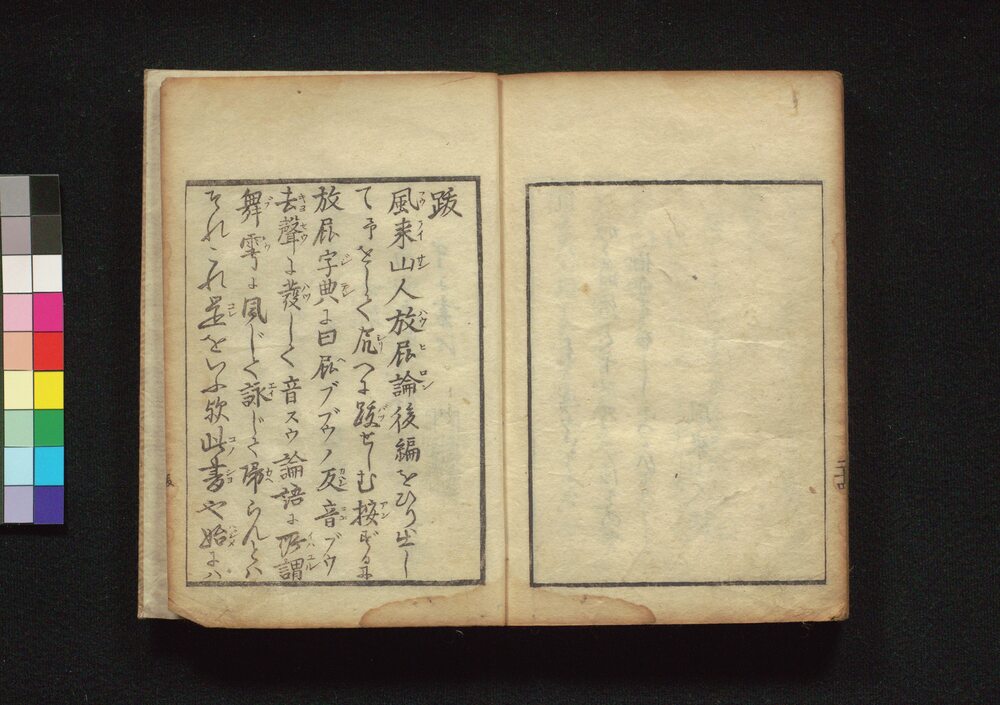 跋
風来山人放屁論後編をひり出し
て予をしく尻へに跋せしむ按ずるに
放屁字典に曰屁ブブウノ反音ブウ
去聲に發しく音スウ論語に所謂
舞雩に風じて詠じて帰らんとハ
それこれ是をいふ歟此書や始にハ
二十四